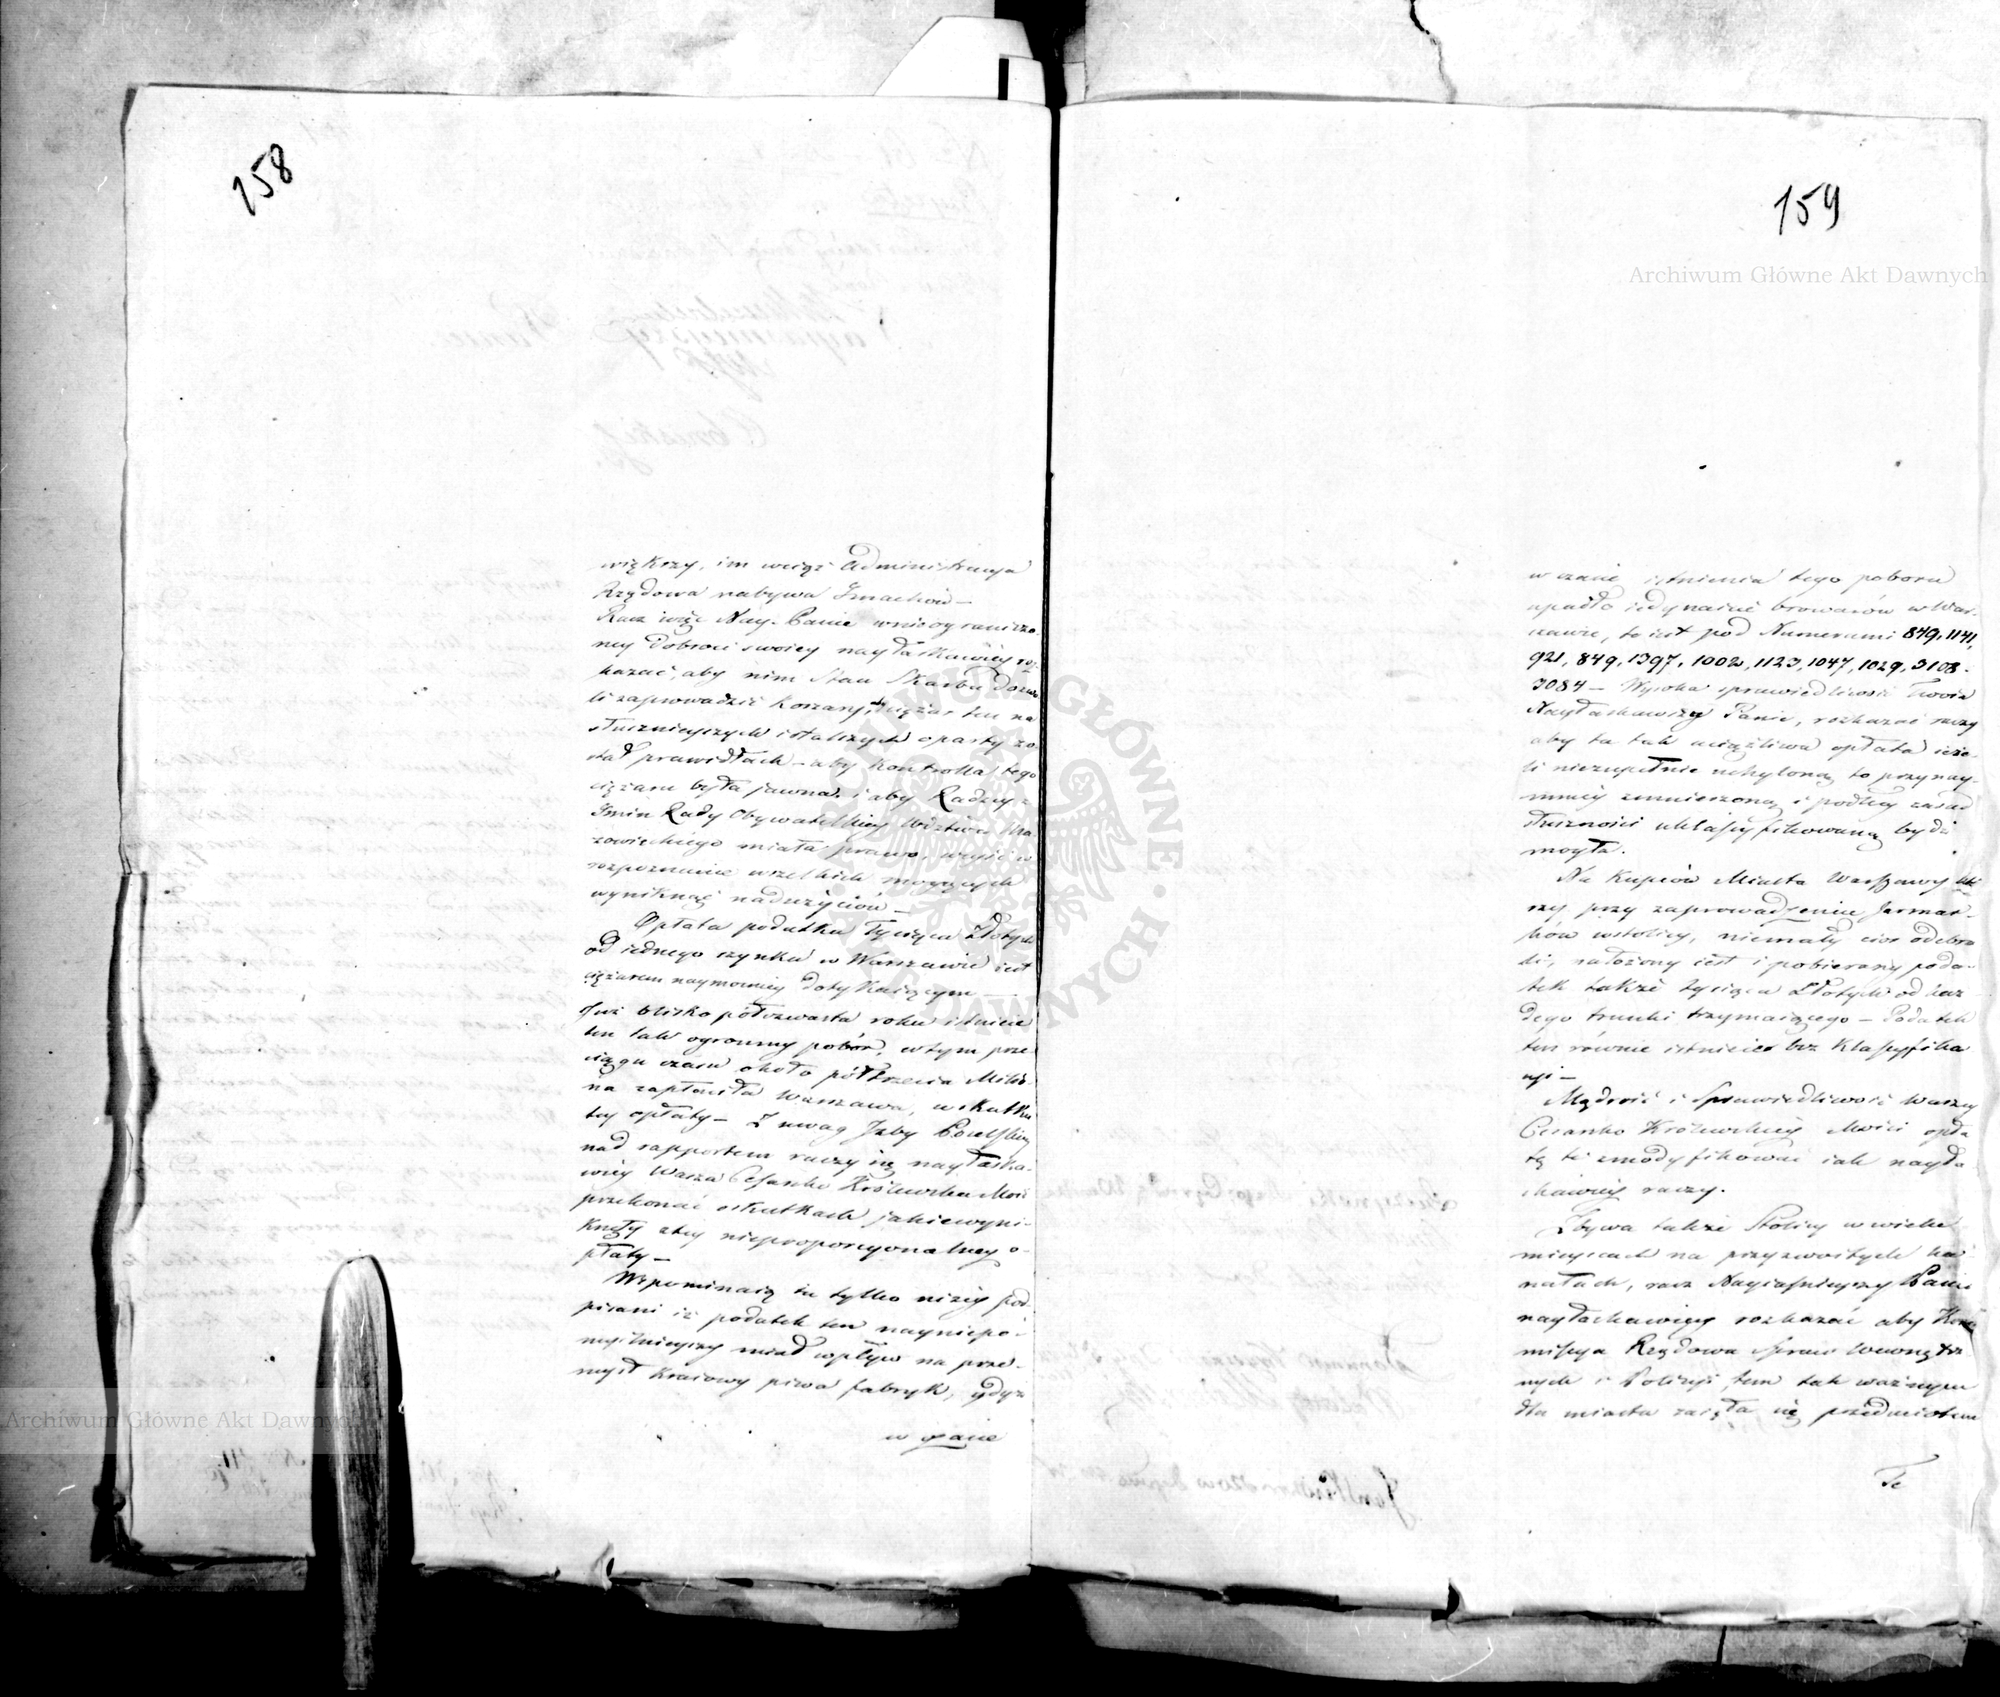 158
większy, im więcej Administracya
Rządowa nabywa Gmachów—
Racz więc Nay. Panie w nieograniczo-
ney dobroci swoiey nayłaskawiey roz-
kazać, aby nim Stan Skarbu dozwo-
li zaprowadzić Koszary, ciężar ten na
słusznieyszych i stalszych oparty zo-
stał prawidłach — aby Kontrolla tego
ciężaru była jawna. i aby Radzcy
Gmin Rady Obywatelskiey Wdztwa Ma-
zowieckiego miała prawo, wniść w
rozpoznanie wszelkich mogących
wyniknąć nadużyciów —
Opłata podatku Tysiąca Złotych
od iednego szynku w Warszawie iest
ciężarem naymocniey dotykaiącym —
Już blisko półczwarta roku istnieie
ten tak ogromny pobór, w tym prze-
ciągu czasu około półtrzecia Milio-
na zapłaciła Warszawa, w skutku
tey opłaty — Z uwag Izby Poselskiey
nad rapportem raczy się nayłaska-
wiey Wasza Cesarsko Królewska Mość
przekonać o skutkach jakie wyni-
knęły z tey nieproporcyonalney o-
płaty —
Wspominaią tu tylko niżey pod-
pisani iż podatek ten nayniepo-
myślnieyszy miał wpływ na prze-
mysł Kraiowy piwa fabryk, gdyż
w czasie
159
w czasie istnienia tego poboru
upadło iedynaście browarów w War-
szawie, to iest pod Numerami 849, 1141,
921, 849, 1397, 1002, 1123, 1047, 1029, 3108.
3084 — Wysoka sprawiedliwość Twoia
Nayłaskawszy Panie, rozkazać raczy
aby ta tak uciążliwa opłata ieże-
li niezupełnie uchyloną, to przynay-
mniey zmnieszoną i podług zasad
słuszności uklasyfikowaną bydź
mogła.
Na Kupców Miasta Warszawy któ-
rzy przy zaprowadzeniu Jarmar-
ków w stolicy, niemały cios odebra-
li, nałożony iest i pobierany poda-
tek także tysiąca Złotych od każ-
dego trunki trzymaiącego — Podatek
ten równie istnieie bez Klasyfika-
cyi —
Mądrość i Sprawiedliwość Waszey
Cesarsko Królewskiey Mości opła-
tę tę zmodyfikować iak nayła-
skawiey raczy.
Zbywa także Stolicy w wielu
mieyscach na przyzwoitych ka-
nałach, racz Nayiaśnieyszy Panie
nayłaskawiey rozkazać aby Kom-
missya Rządowa Spraw Wewnętrz-
nych i Policyi, tem tak ważnym
dla miasta zaięła się przedmiotem
Te
Archiwum Główne Akt Dawnych
Archiwum Główne Akt Dawnych